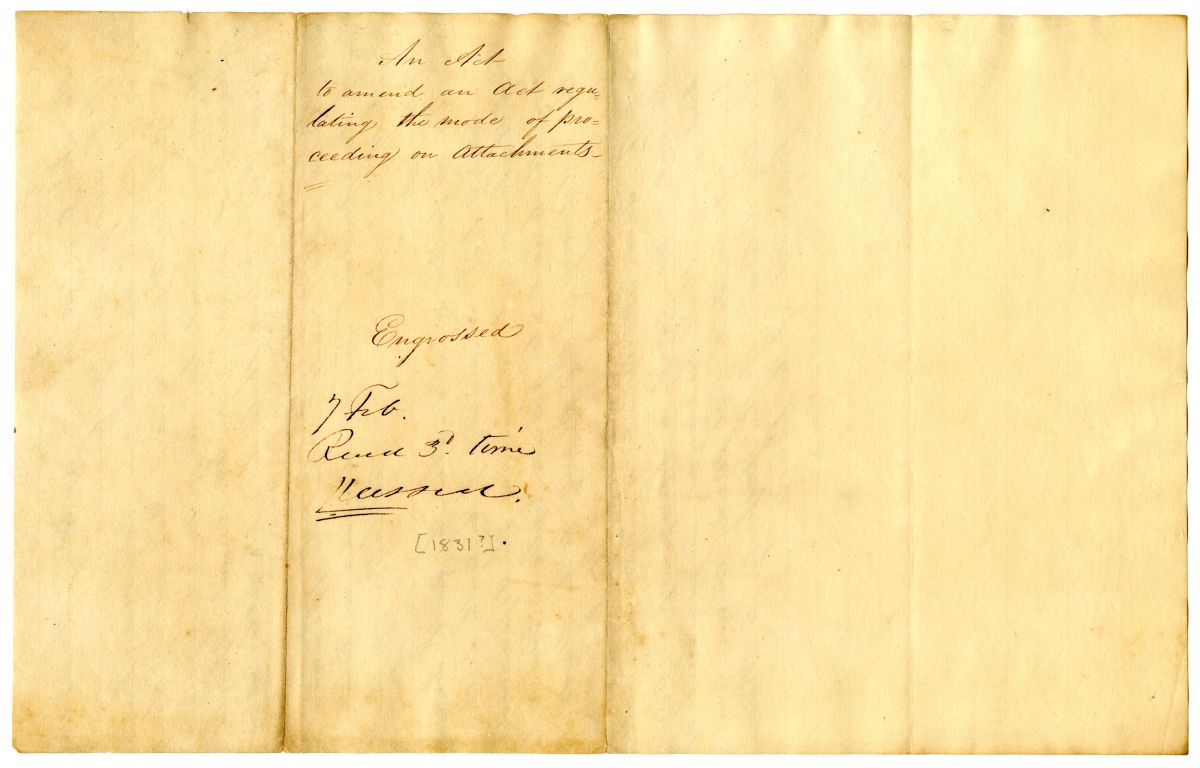 An Act
to amend an Act regu=
lating the mode of pro=
ceeding on Attachments_
Engrossed
7 Feb.
Read 3d. time
Passed.
[1831?].